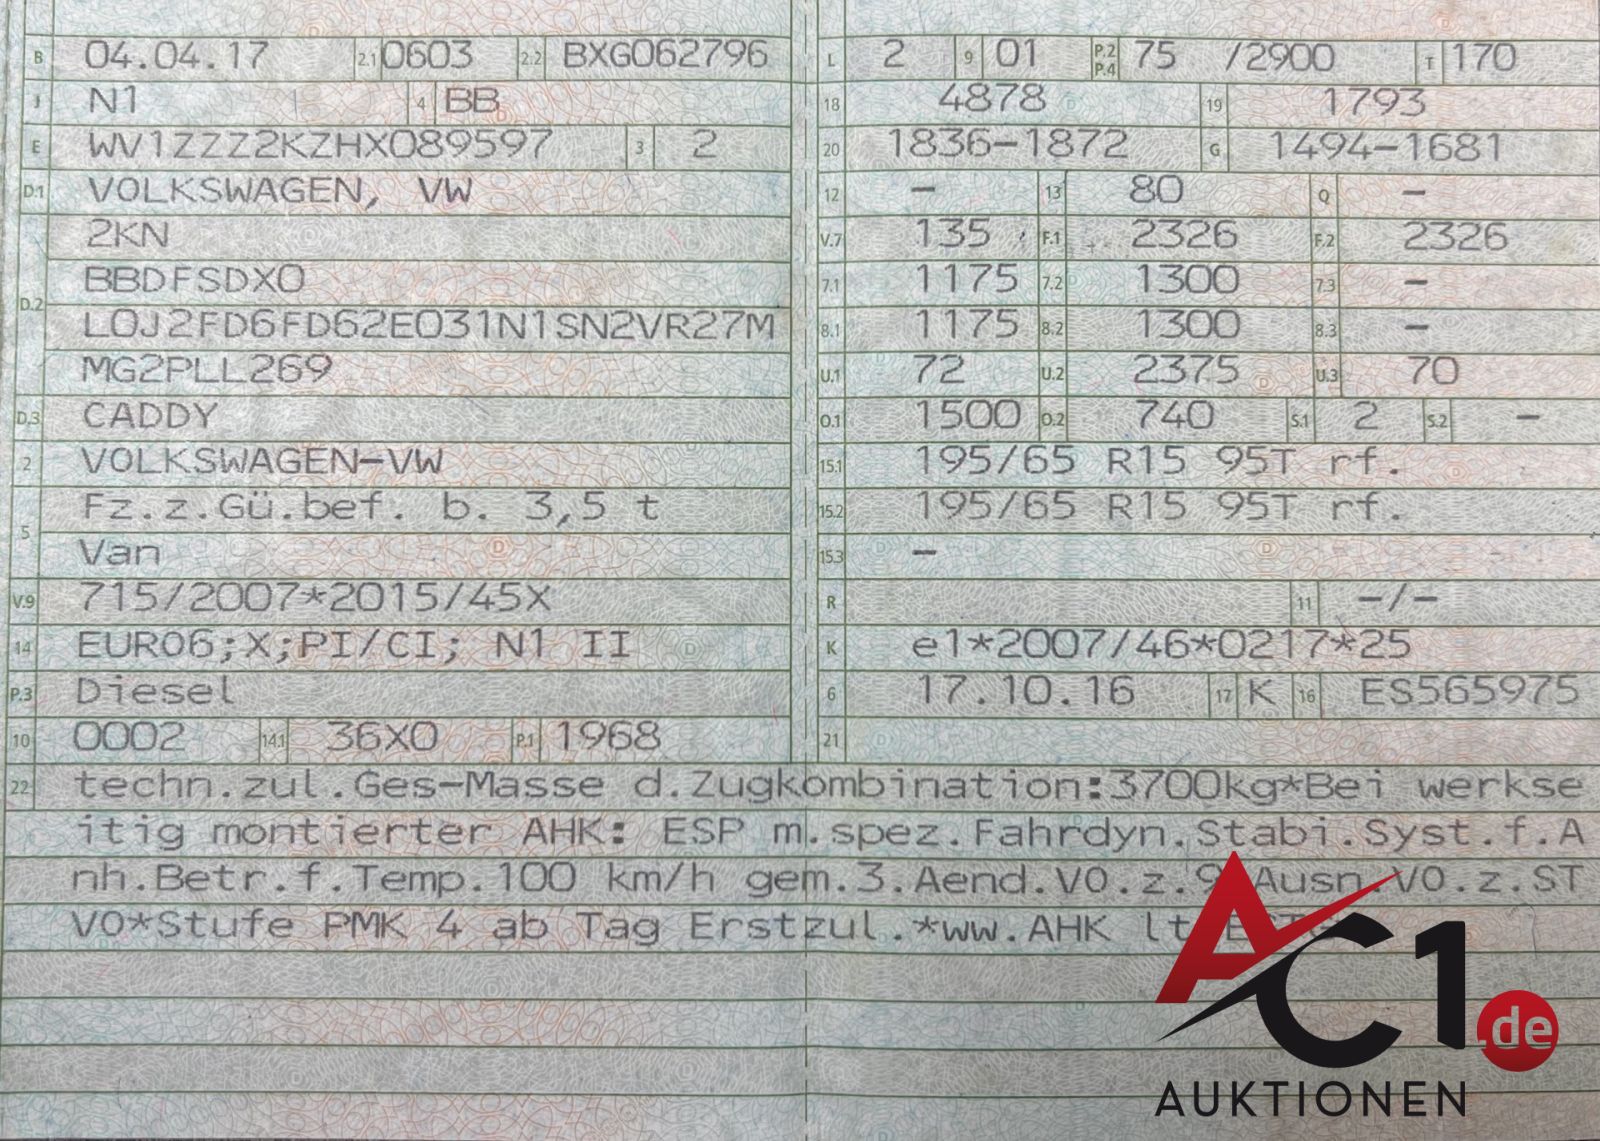 B 04.04.17 2.1 0603 2.2 BXG062796
J N1 4 BB
E WV1ZZZ2KZHX089597 3 2
D.1 VOLKSWAGEN, VW
2KN
BBDFSDX0
D.2
L0J2FD6FD62E031N1SN2VR27M
MG2PLL269
D.3 CADDY
2 VOLKSWAGEN-VW
Fz.z.Gü.bef. b. 3,5 t
5
Van
V.9 715/2007*2015/45X
14 EURO6;X;PI/CI; N1 II
P.3 Diesel
10 0002 14.1 36X0 P.1 1968
L 2 9 01 P.2 P.4 75 /2900 T 170
18 4878 19 1793
20 1836-1872 G 1494-1681
12 - 13 80 Q -
V.7 135 F.1 2326 F.2 2326
7.1 1175 7.2 1300 7.3 -
8.1 1175 8.2 1300 8.3 -
U.1 72 U.2 2375 U.3 70
O.1 1500 O.2 740 S.1 2 S.2 -
15.1 195/65 R15 95T rf.
15.2 195/65 R15 95T rf.
15.3 -
R 11 -/-
K e1*2007/46*0217*25
6 17.10.16 17 K 16 ES565975
21
22 techn.zul.Ges-Masse d.Zugkombination:3700kg*Bei werkse
itig montierter AHK: ESP m.spez.Fahrdyn.Stabi.Syst.f.A
nh.Betr.f.Temp.100 km/h gem.3.Aend.VO.z.9.Ausn.VO.z.ST
VO*Stufe PMK 4 ab Tag Erstzul.*ww.AHK lt.
AC1.de
AUKTIONEN